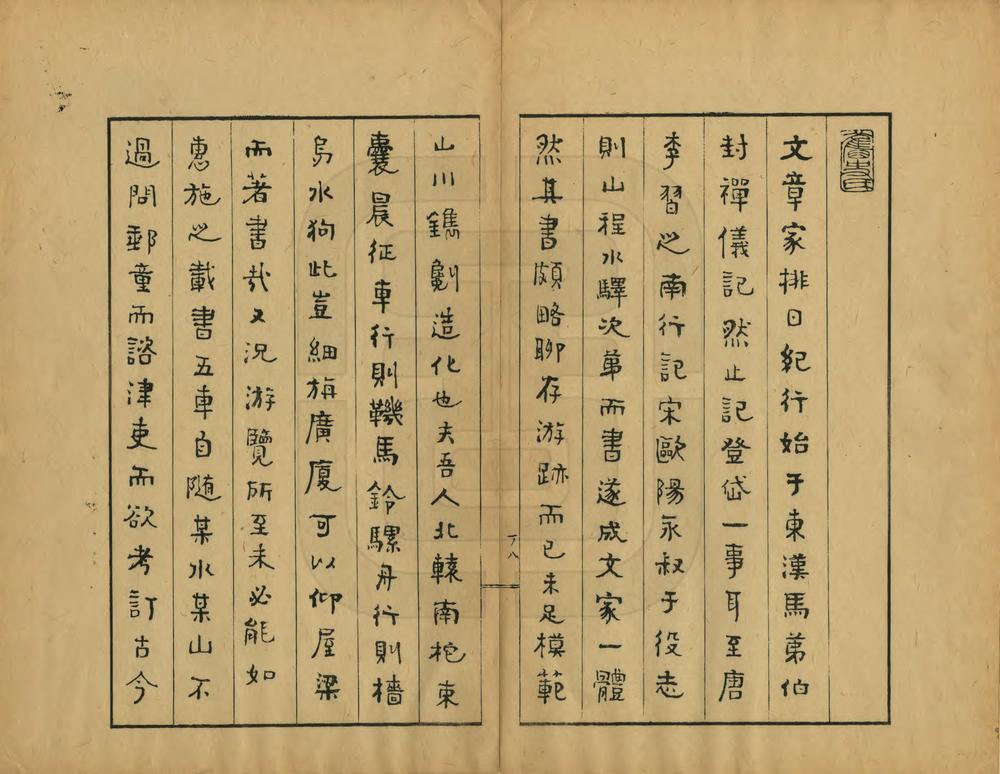 文章家排日紀行始于東漢馬第伯
封禪儀記然止記登岱一事耳至唐
李習之南行記宋歐陽永叔于役志
則山程水驛次第而書遂成文家一體
然其書頗略聊存游跡而已未足模範
山川鐫劖造化也夫吾人北轅南柁束
囊晨征車行則鞿馬鈴騾舟行則檣
烏水狗此豈細旃廣廈可以仰屋梁
而著書哉又況游覽所至未必能如
惠施之載書五車自随某水某山不
過問郵童而諮津吏而欲考訂古今
丁八